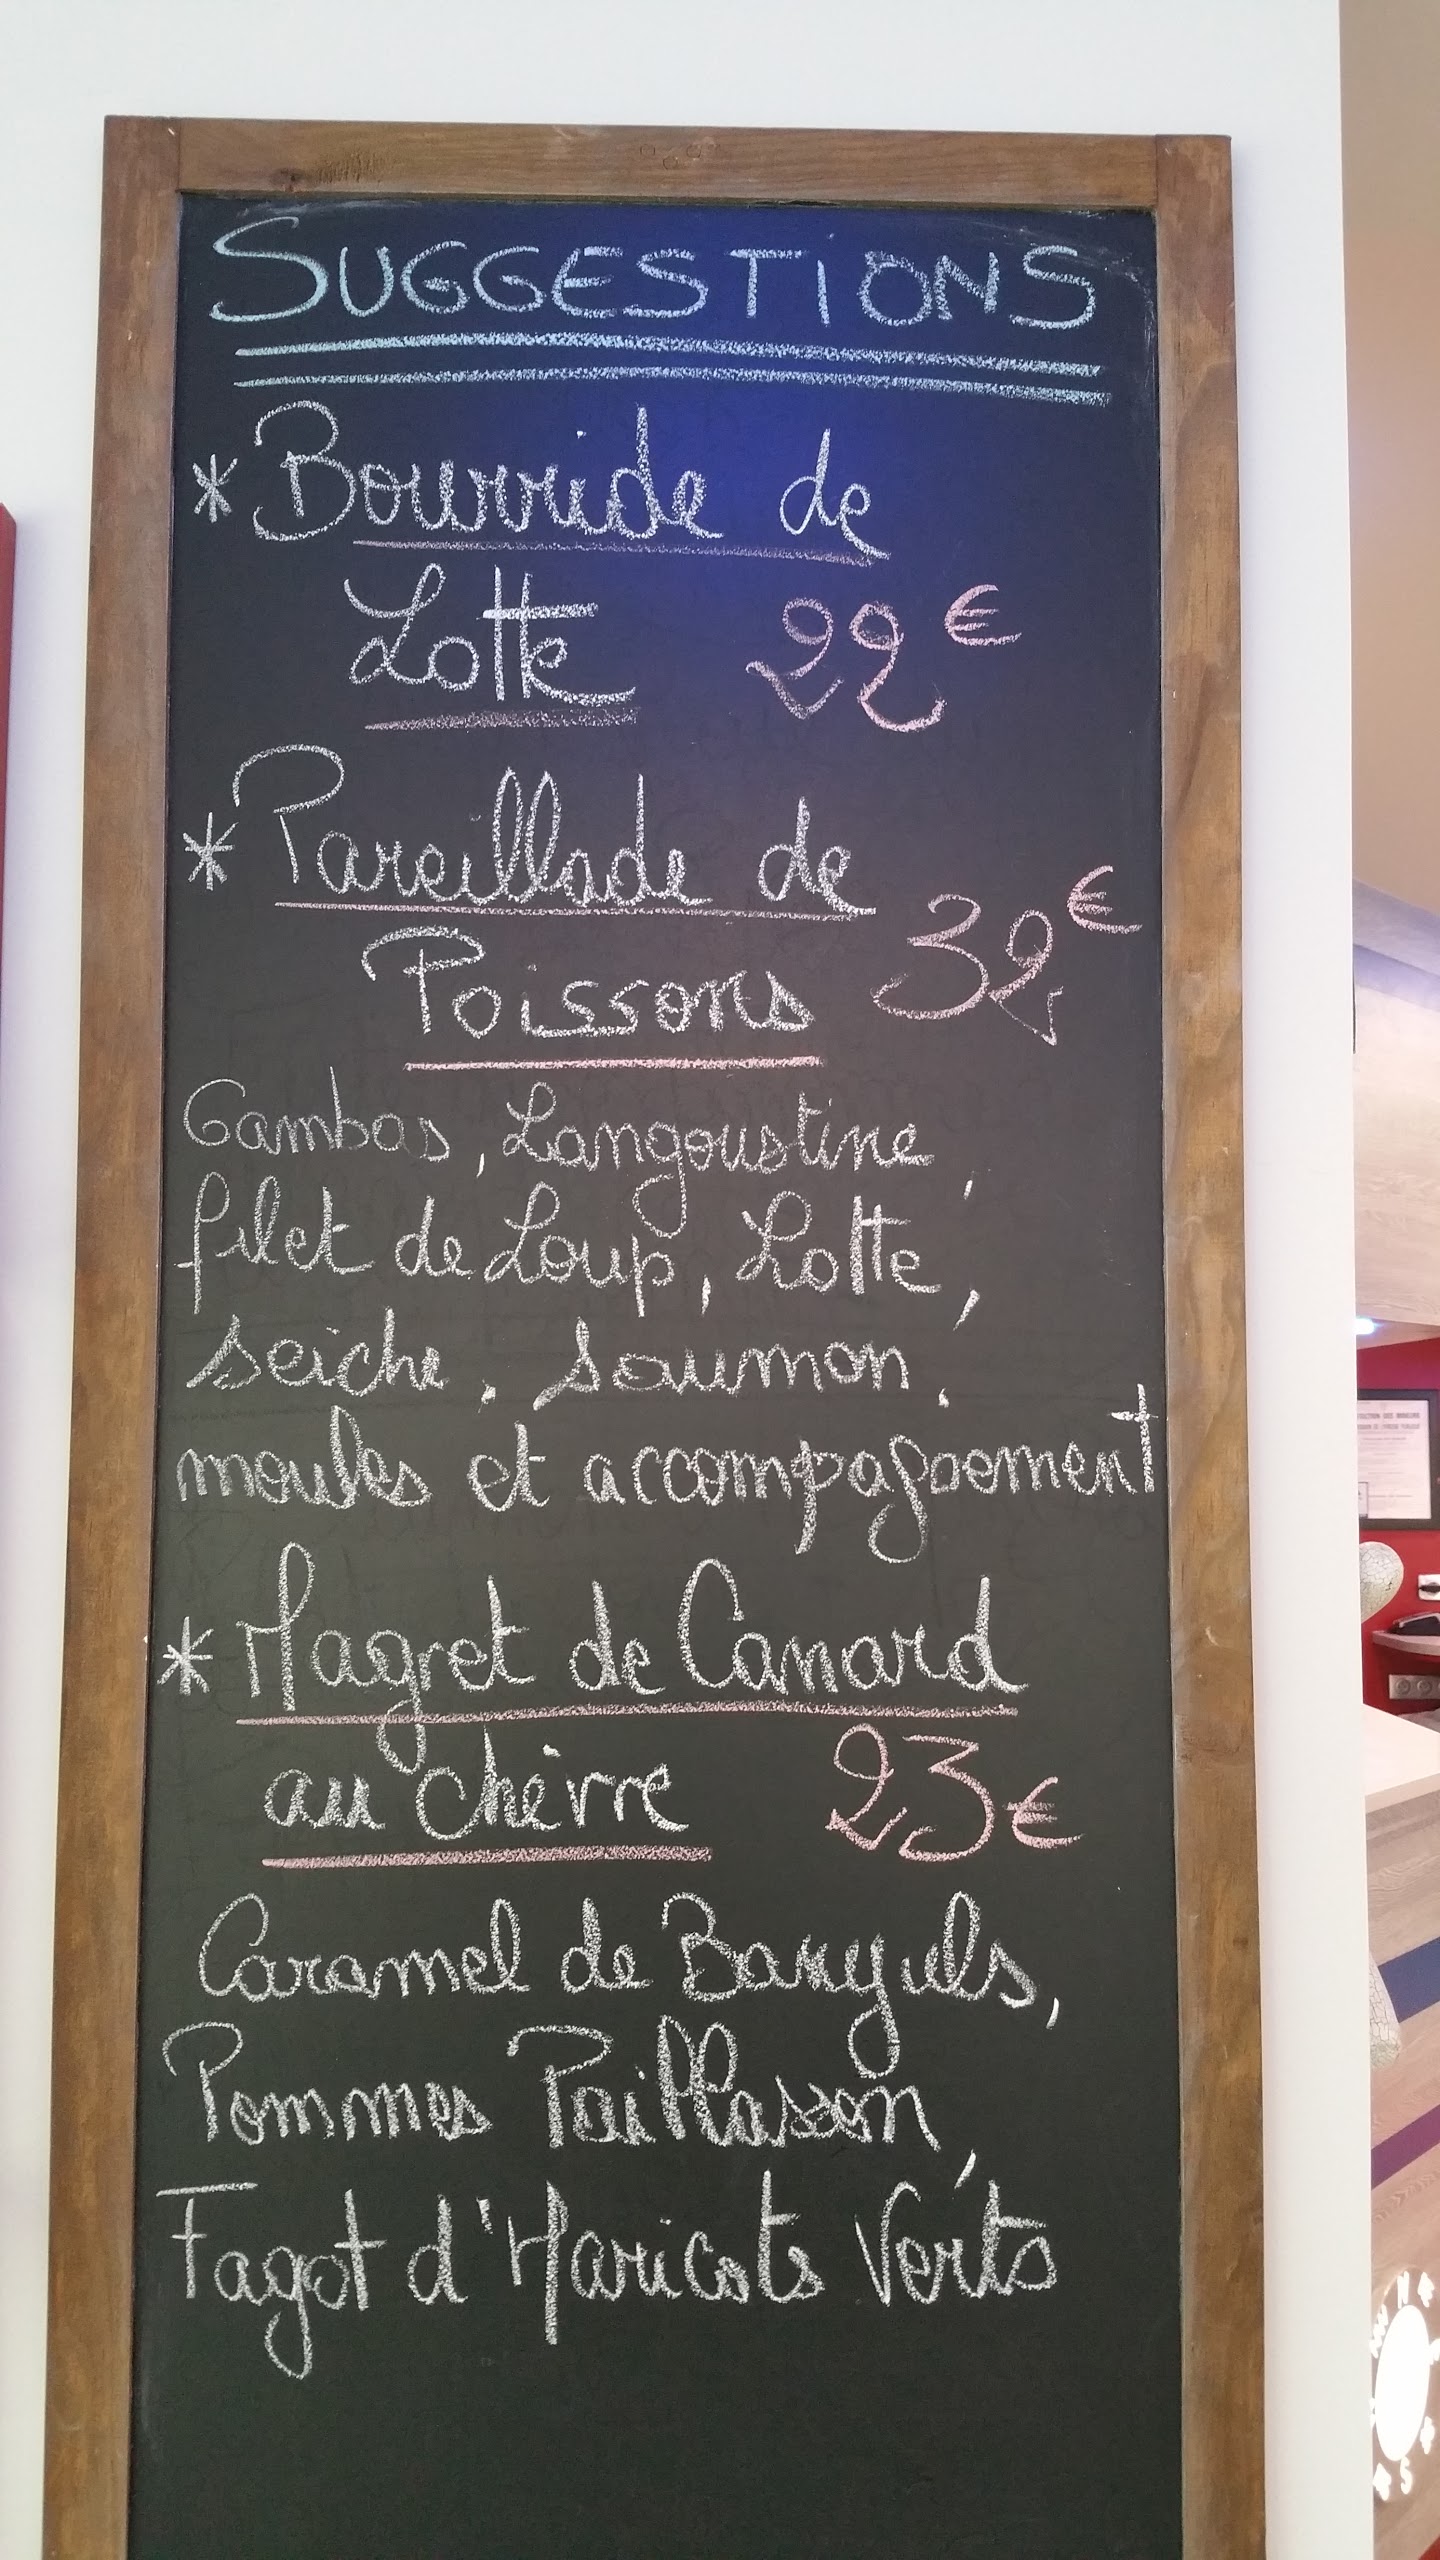 SUGGESTIONS
* Bourride de
Lotte 22€
* Pareillade de
Poissons 32€
Gambas, Langoustine,
filet de Loup, Lotte,
seiche, Saumon,
moules et accompagnement
* Magret de Canard
au chèvre 23€
Caramel de Banyuls,
Pommes Paillasson,
Fagot d'Haricots Verts